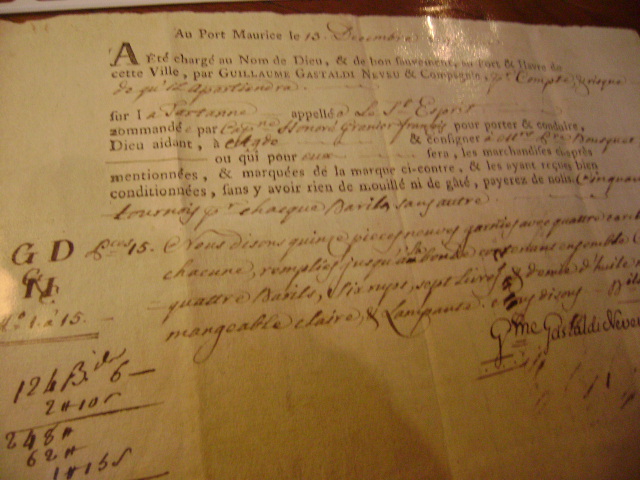 Au Port Maurice le 13. Decembre
A Eté chargé au Nom de Dieu, & de bon sauvement, au Port & Havre de
cette Ville, par GUILLAUME GASTALDI NEVEU & Compagnie, pr Compte & risque
de qu'il apartiendra.
sur la Tartanne appellée Le St. Esprit
commandé par Capne Honoré Granier françois pour porter & conduire,
Dieu aidant, à & consigner à Bousquet
ou qui pour eux sera, les marchandises cy-après
mentionnées, & marquées de la marque ci-contre, & les ayant reçues bien
conditionnées, sans y avoir rien de mouillé ni de gâté, payerez de nolis Cinquan
tournois pr chacque Barils sans autre.
G D
G
N
No. 1. à 15.
15. Nous disons quinze pieces neuves garnies avec quattre
chacune, remplies jusqu'au bondon contenant ensemble
quattre Barils, six rups, sept Livres & demie d'huile
mangeable claire, & Lampante. disons
Gme Gastaldi Neveu
124 Bils 6 —
2 # 10 s
248 #
62 #
1 # 15 s